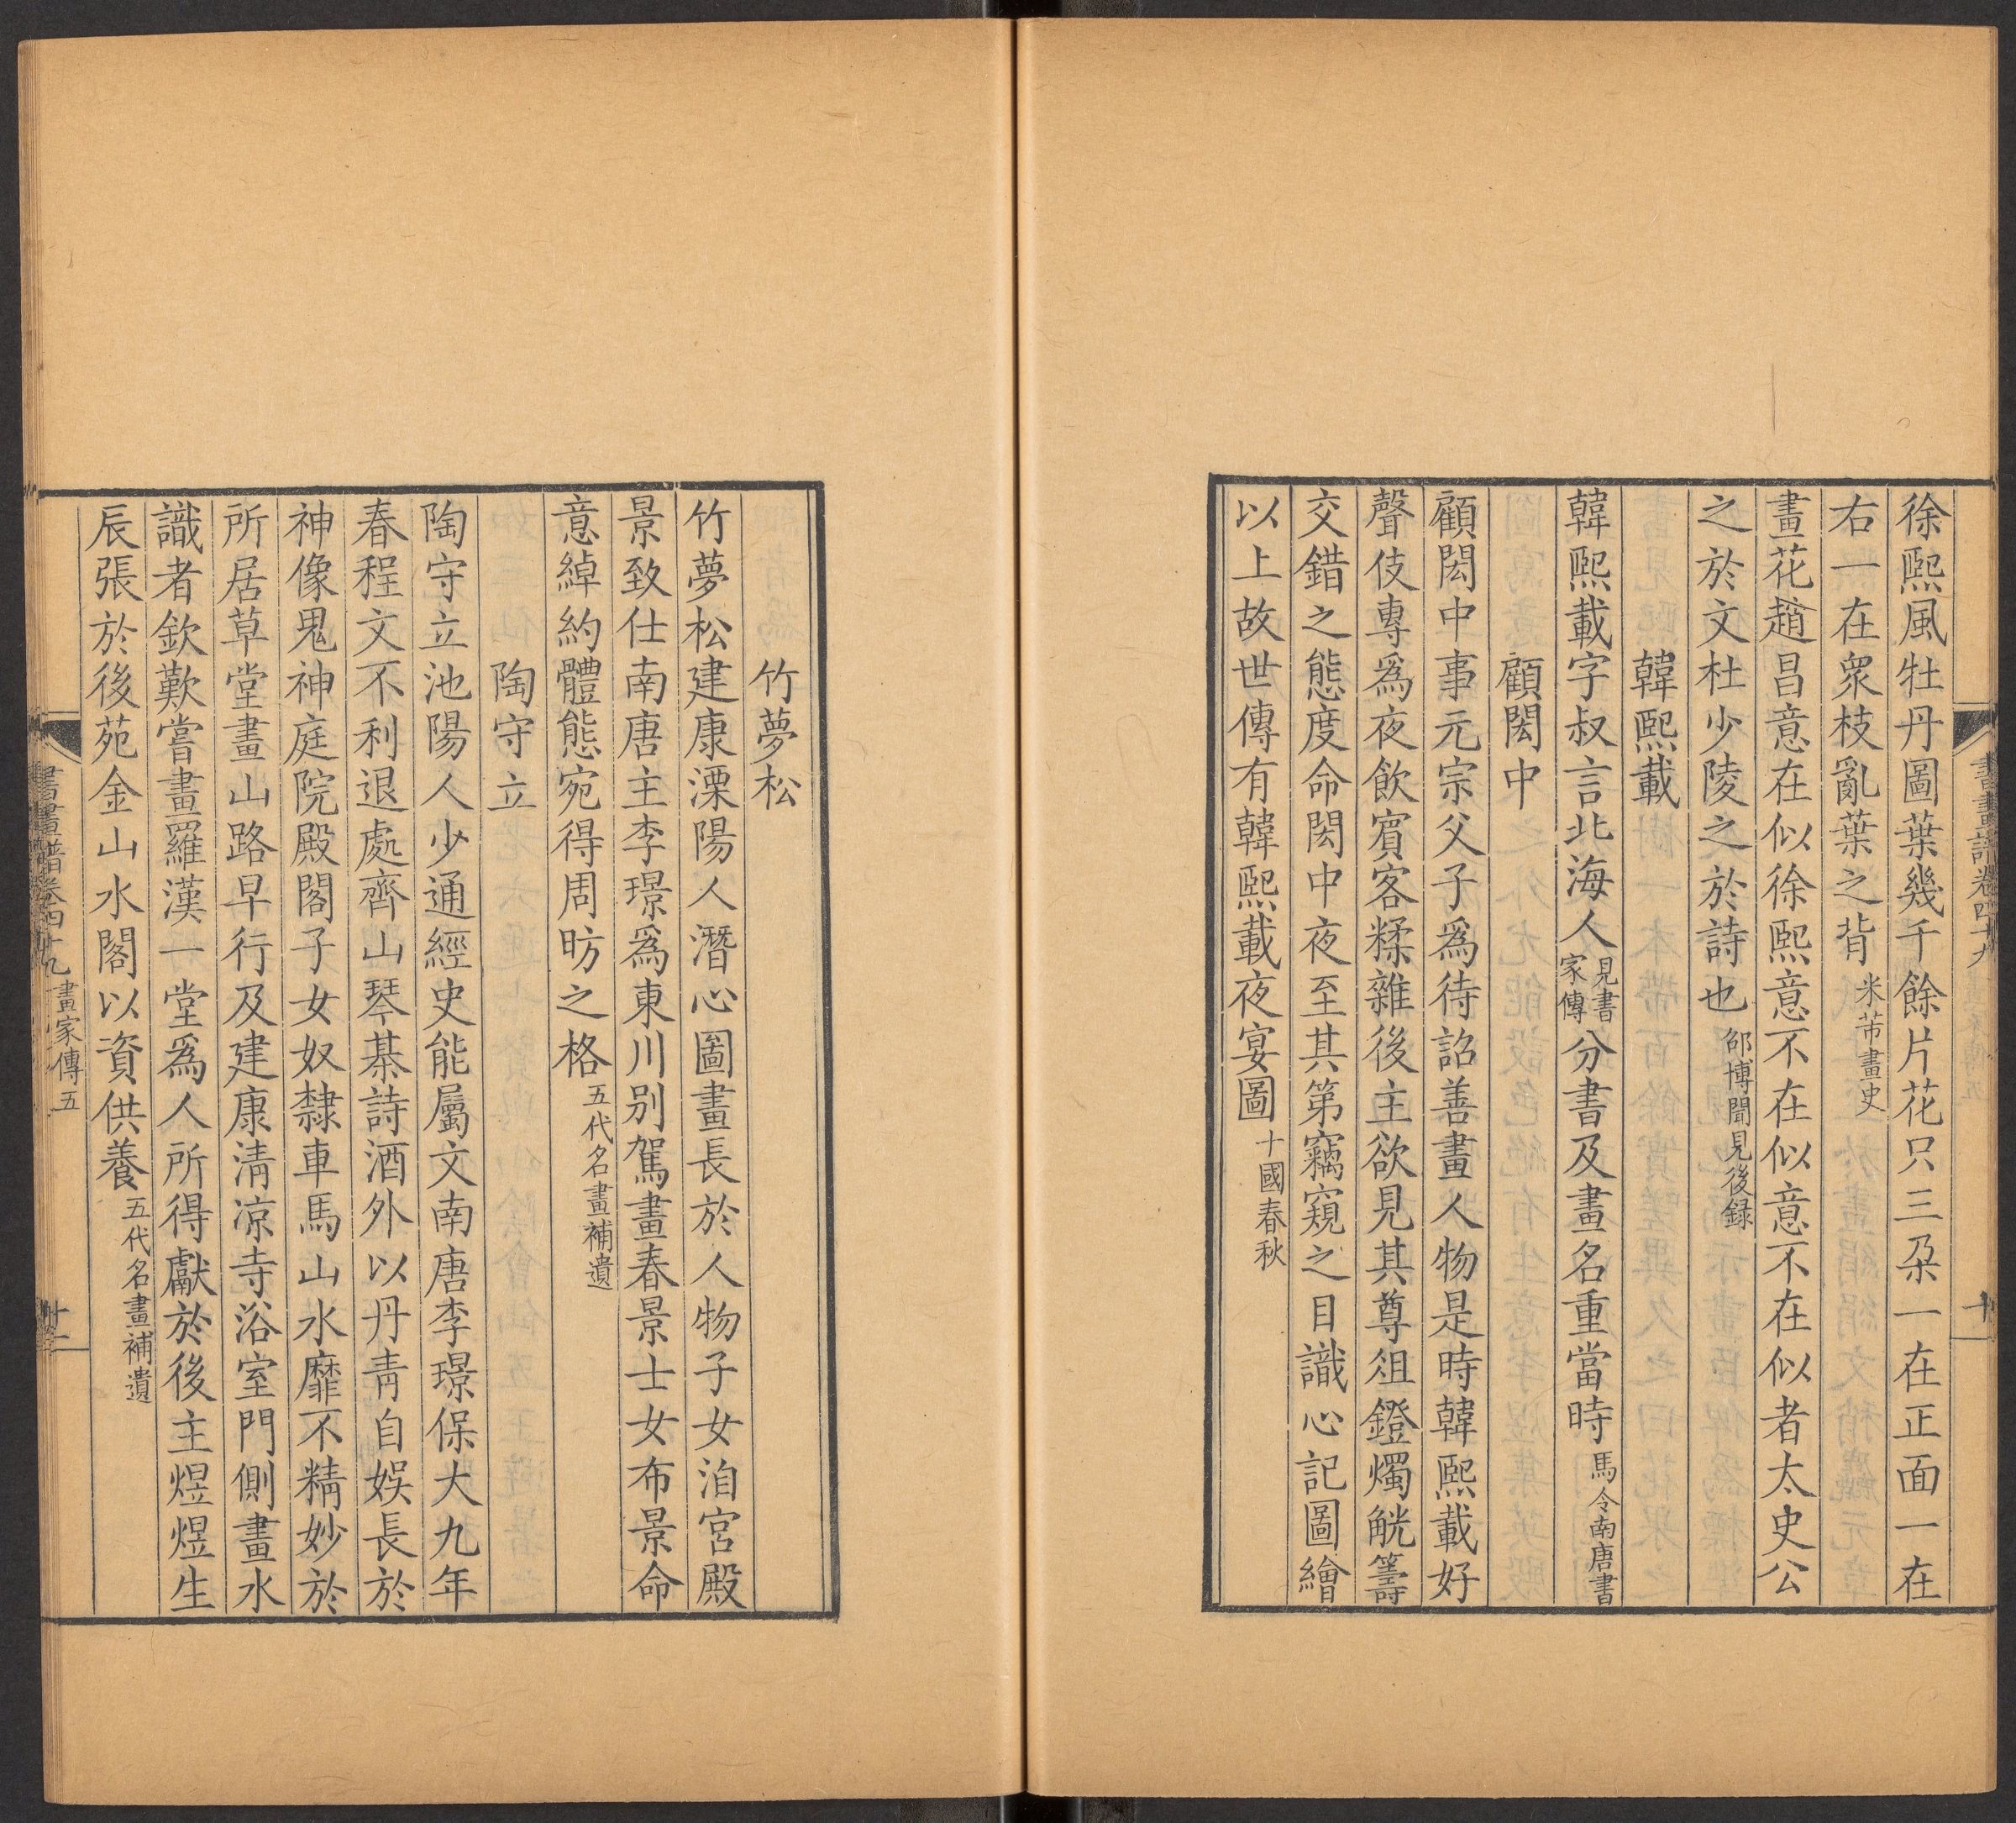 徐熙風牡丹圖葉幾千餘片花只三朶一在正面一在
右一在衆枝亂葉之背米芾畫史
畫花趙昌意在似徐熙意不在似意不在似者太史公
之於文杜少陵之於詩也邵博聞見後録
韓熙載
韓熙載字叔言北海人見書家傳分書及畫名重當時馬令南唐書
顧閎中
顧閎中事元宗父子爲待詔善畫人物是時韓熙載好
聲伎專爲夜飲賓客糅雜後主欲見其尊俎鐙燭觥籌
交錯之態度命閎中夜至其第竊窺之目識心記圖繪
以上故世傳有韓熙載夜宴圖十國春秋
竹夢松
竹夢松建康溧陽人潛心圖畫長於人物子女洎宮殿
景致仕南唐主李璟爲東川別駕畫春景士女布景命
意綽約體態宛得周昉之格五代名畫補遺
陶守立
陶守立池陽人少通經史能屬文南唐李璟保大九年
春程文不利退處齊山琴棊詩酒外以丹青自娛長於
神像鬼神庭院殿閣子女奴隸車馬山水靡不精妙於
所居草堂畫山路早行及建康清涼寺浴室門側畫水
識者欽歎嘗畫羅漢一堂爲人所得獻於後主煜煜生
辰張於後苑金山水閣以資供養五代名畫補遺
書畫譜卷四十九 畫家傳五